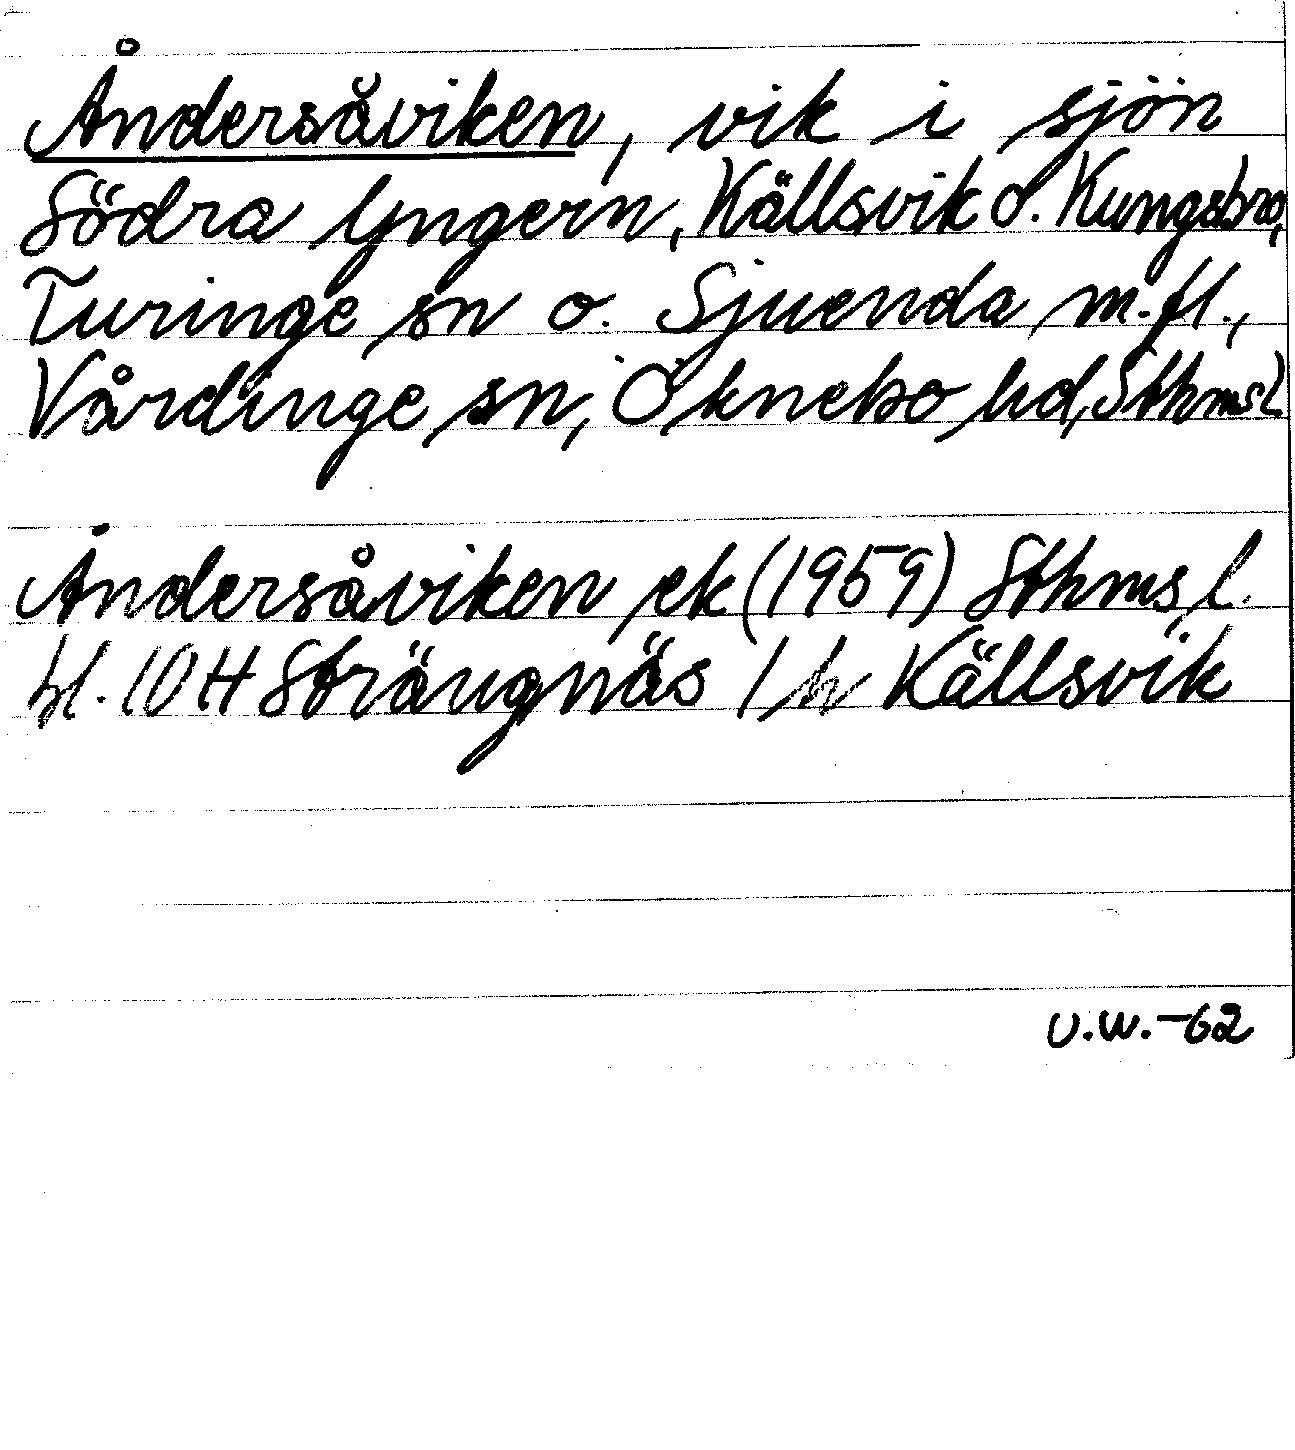 Åndersåviken, vik i sjön
Södra Yngern, Källsvik o. Kungsbro,
Turinge sn o. Sjuenda m.fl.,
Vårdinge sn, Öknebo hd, Sthms l.
Åndersåviken ek (1959) Sthms l.
bl. 10 H Strängnäs 1 h Källsvik
U.W.-62